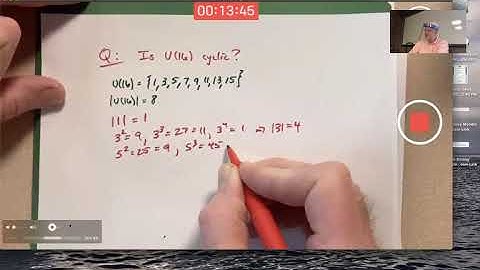 00:13:45
Q: Is U(16) cyclic?
U(16) = {1, 3, 5, 7, 9, 11, 13, 15}
|U(16)| = 8
|1| = 1
3² = 9, 3³ = 27 = 11, 3⁴ = 1 ⇒ |3| = 4
5² = 25 = 9, 5³ = 45